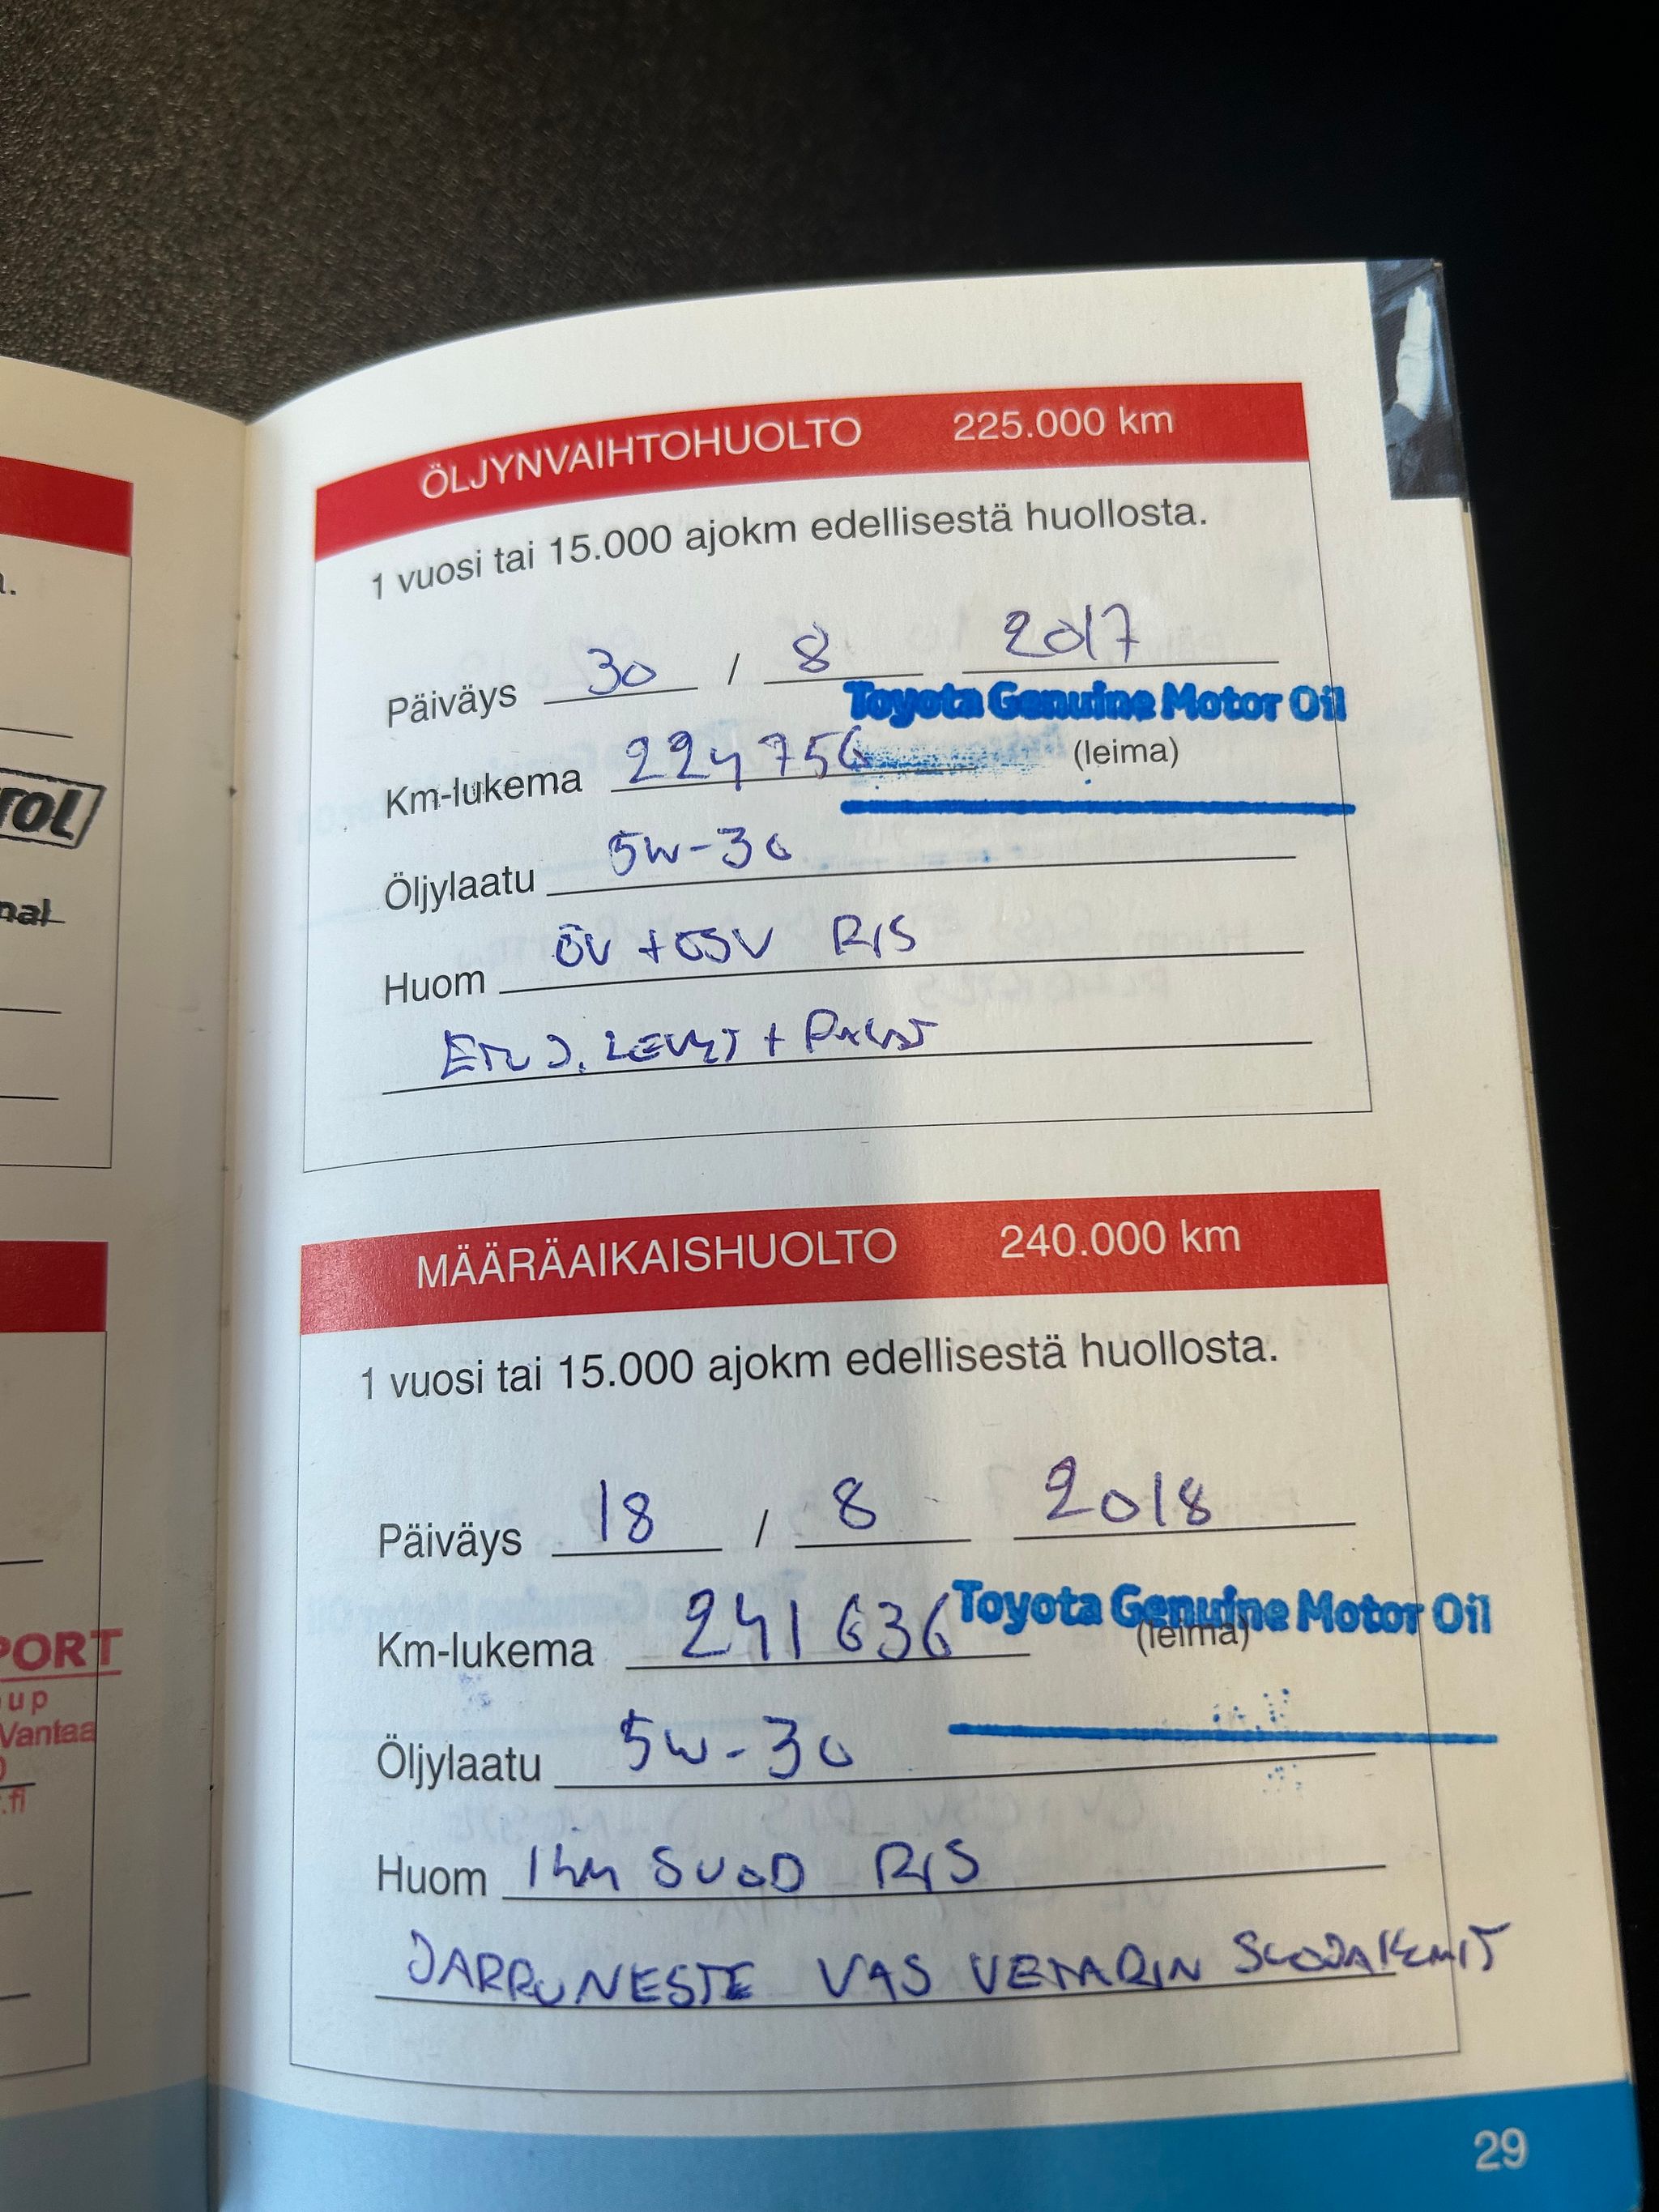 TOL
nal
PORT
up
Vantaa
.fi
ÖLJYNVAIHTOHUOLTO 225.000 km
1 vuosi tai 15.000 ajokm edellisestä huollosta.
Päiväys 30 / 8 2017
Toyota Genuine Motor Oil
Km-lukema 224756 (leima)
Öljylaatu 5W-30
Huom ÖV + ÖSV R/S
ETU J. LEVYT + PALAT
MÄÄRÄAIKAISHUOLTO 240.000 km
1 vuosi tai 15.000 ajokm edellisestä huollosta.
Päiväys 18 / 8 2018
Km-lukema 241636 Toyota Genuine Motor Oil
(leima)
Öljylaatu 5W-30
Huom SUOD R/S
JARRUNESTE VAS VETARIN SUOJAKUMIT
29